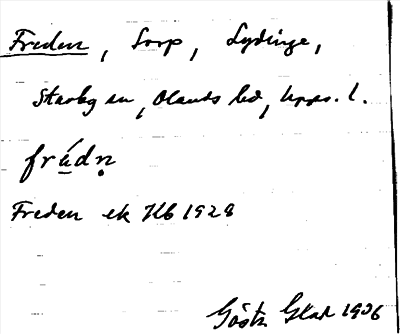 Freden, torp, Lydinge,
Stavby sn, Olands hd, Upps. l.
frúdn
Freden ek Kb 1928
Gösta 1936